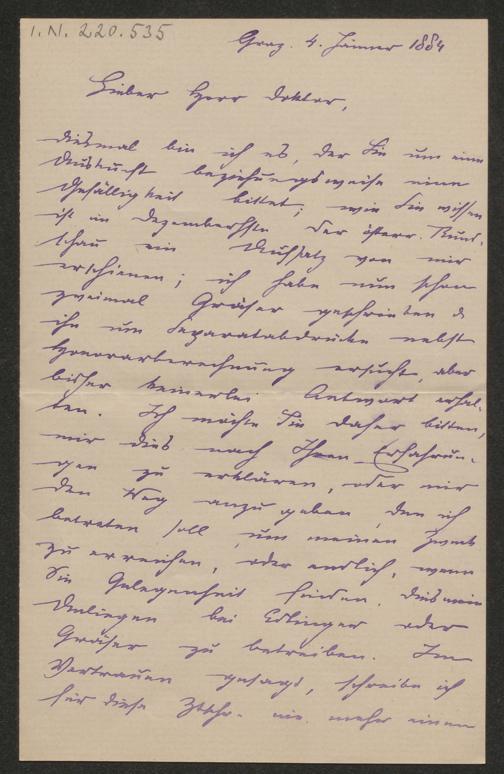 I.N. 220.535
Graz. 4. Jänner 1884
Lieber Herr Doktor,
diesmal bin ich es, der Sie um eine
Auskunft beziehungsweise eine
Gefälligkeit bittet; wie Sie wissen
ist im Dezemberhefte der österr. Rund-
schau ein Aufsatz von mir
erschienen; ich habe nun schon
zweimal Gräser geschrieben &
ihn um Separatabdrücke nebst
Honorarberechnung ersucht, aber
bisher keinerlei Antwort erhal-
ten. Ich möchte Sie daher bitten,
mir dies nach Ihren Erfahrun-
gen zu erklären, oder mir
den Weg anzugeben, den ich
betreten soll, um meinen Zweck
zu erreichen, oder endlich, wenn
Sie Gelegenheit finden, dies mein
Anliegen bei Edlinger oder
Gräser zu betreiben. Im
Vertrauen gesagt, schreibe ich
für diese Ztschr. nie mehr einen